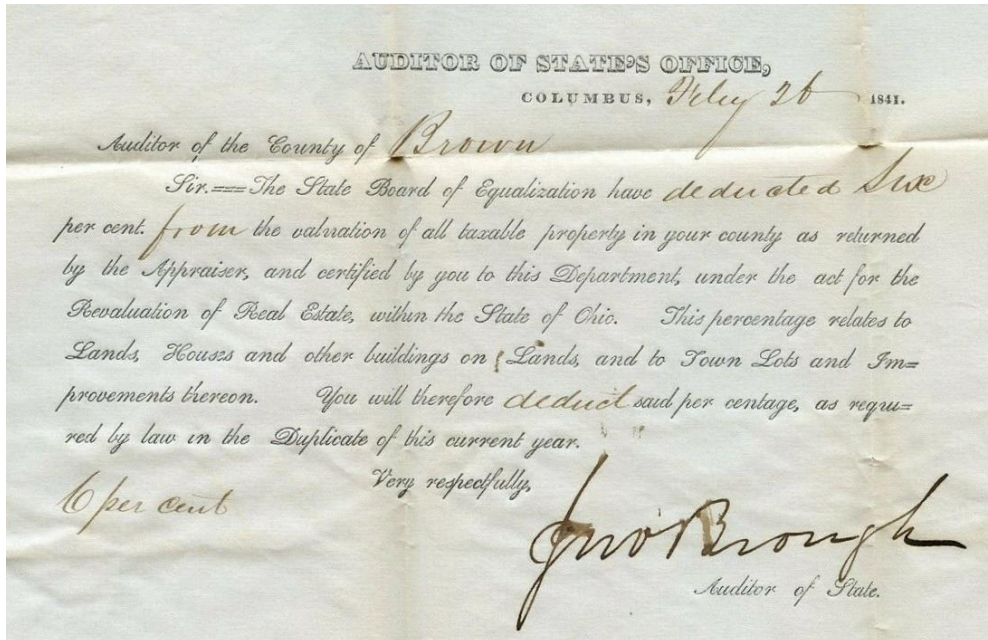 AUDITOR OF STATE'S OFFICE,
COLUMBUS, Feby 26 1841.
Auditor of the County of Brown
Sir.=The State Board of Equalization have deducted Six
per cent. from the valuation of all taxable property in your county as returned
by the Appraiser, and certified by you to this Department, under the act for the
Revaluation of Real Estate, within the State of Ohio. This percentage relates to
Lands, Houses and other buildings on Lands, and to Town Lots and Im=
provements thereon. You will therefore deduct said per centage, as requi=
red by law in the Duplicate of this current year.
Very respectfully,
6 per cent
Jno Brough
Auditor of State.